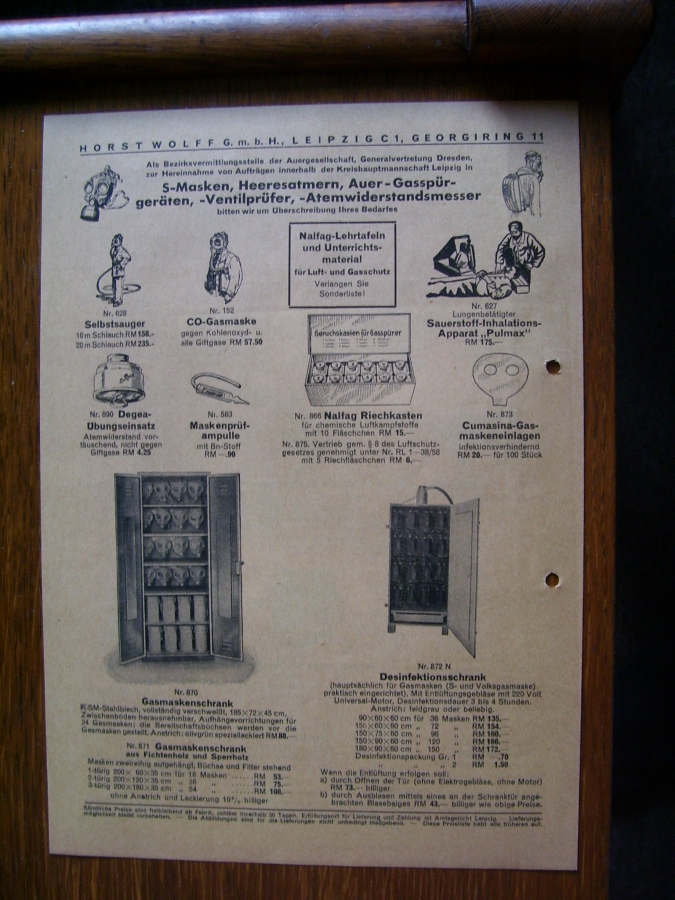 HORST WOLFF G. m. b. H., LEIPZIG C1, GEORGIRING 11
Als Bezirksvermittlungsstelle der Auergesellschaft, Generalvertretung Dresden,
zur Hereinnahme von Aufträgen innerhalb der Kreishauptmannschaft Leipzig in
S-Masken, Heeresatmern, Auer-Gasspür-
geräten, -Ventilprüfer, -Atemwiderstandsmesser
bitten wir um Überschreibung Ihres Bedarfes
Nr. 628
Selbstsauger
10 m Schlauch RM 158.–
20 m Schlauch RM 235.–
Nr. 152
CO-Gasmaske
gegen Kohlenoxyd- u.
alle Giftgase RM 57.50
Nalfag-Lehrtafeln
und Unterrichts-
material
für Luft- und Gasschutz
Verlangen Sie
Sonderliste!
Nr. 627
Lungenbetätigter
Sauerstoff-Inhalations-
Apparat „Pulmax"
RM 175.—
Geruchskasten für Gasspürer
Nr. 890 Degea-
Übungseinsatz
Atemwiderstand vor-
täuschend, nicht gegen
Giftgase RM 4.25
Nr. 583
Maskenprüf-
ampulle
mit Bn-Stoff
RM —.90
Nr. 866 Nalfag Riechkasten
für chemische Luftkampfstoffe
mit 10 Fläschchen RM 15.—
Nr. 875. Vertrieb gem. § 8 des Luftschutz-
gesetzes genehmigt unter Nr. RL 1—38/58
mit 5 Riechfläschchen RM 6,—
Nr. 873
Cumasina-Gas-
maskeneinlagen
infektionsverhindernd
RM 20.— für 100 Stück
Nr. 870
Gasmaskenschrank
SM-Stahlblech, vollständig verschweißt, 185×72×45 cm,
Zwischenböden herausnehmbar, Aufhängevorrichtungen für
24 Gasmasken; die Bereitschaftsbüchsen werden vor die
Gasmasken gestellt. Anstrich: olivgrün speziallackiert RM 88.—
Nr. 871 Gasmaskenschrank
aus Fichtenholz und Sperrholz
Masken zweireihig aufgehängt, Büchse und Filter stehend
1-türig 200×60×35 cm für 18 Masken ...... RM 53.
2-türig 200×120×35 cm „ 36 „ ...... RM 75.—
3-türig 200×180×35 cm „ 54 „ ...... RM 108.
ohne Anstrich und Lackierung 10% billiger
Nr. 872 N
Desinfektionsschrank
(hauptsächlich für Gasmasken (S- und Volksgasmaske)
praktisch eingerichtet). Mit Entlüftungsgebläse mit 220 Volt
Universal-Motor, Desinfektionsdauer 3 bis 4 Stunden.
Anstrich: feldgrau oder beliebig.
90×60×60 cm für 36 Masken RM 135.—
150×60×60 cm „ 72 „ RM 154.—
150×75×60 cm „ 96 „ RM 160.—
150×90×60 cm „ 120 „ RM 166.—
180×90×60 cm „ 150 „ RM 172.—
Desinfektionspackung Gr. 1 RM —.70
„ „ 2 RM 1.50
Wenn die Entlüftung erfolgen soll:
a) durch Öffnen der Tür (ohne Elektrogebläse, ohne Motor)
RM 73.— billiger
b) durch Ausblasen mittels eines an der Schranktür ange-
brachten Blasebalges RM 43,— billiger wie obige Preise.
Sämtliche Preise sind freibleibend ab Fabrik, zahlbar innerhalb 30 Tagen. Erfüllungsort für Lieferung und Zahlung ist Amtsgericht Leipzig. — Lieferungs-
möglichkeit bleibt vorbehalten. — Die Abbildungen sind für die Lieferungen nicht unbedingt maßgebend. — Diese Preisliste hebt alle früheren auf.